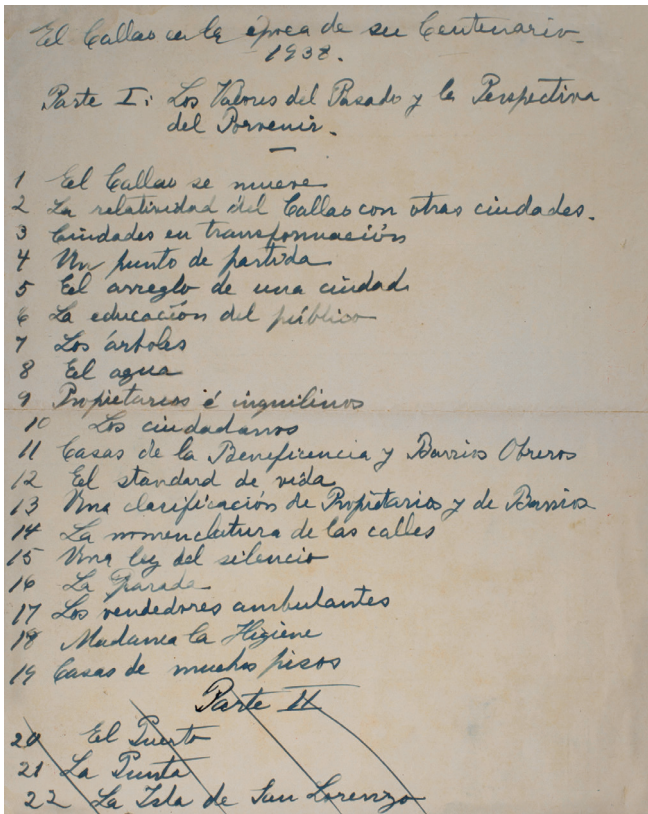 El Callao en la época de su Centenario
1938.
Parte I: Los Valores del Pasado y la Perspectiva
del Porvenir.
1 El Callao se mueve
2 La relatividad del Callao con otras ciudades.
3 Ciudades en transformación
4 Un punto de partida
5 El arreglo de una ciudad
6 La educación del público
7 Los árboles
8 El agua
9 Propietarios é inquilinos
10 Los ciudadanos
11 Casas de la Beneficencia y Barrios Obreros
12 El standard de vida
13 Una clasificación de Propietarios y de Barrios
14 La nomenclatura de las calles
15 Una ley del silencio
16 La Parada
17 Los vendedores ambulantes
18 Madama la Higiene
19 Casas de muchos pisos
Parte II
20 El Puerto
21 La Punta
22 La Isla de San Lorenzo